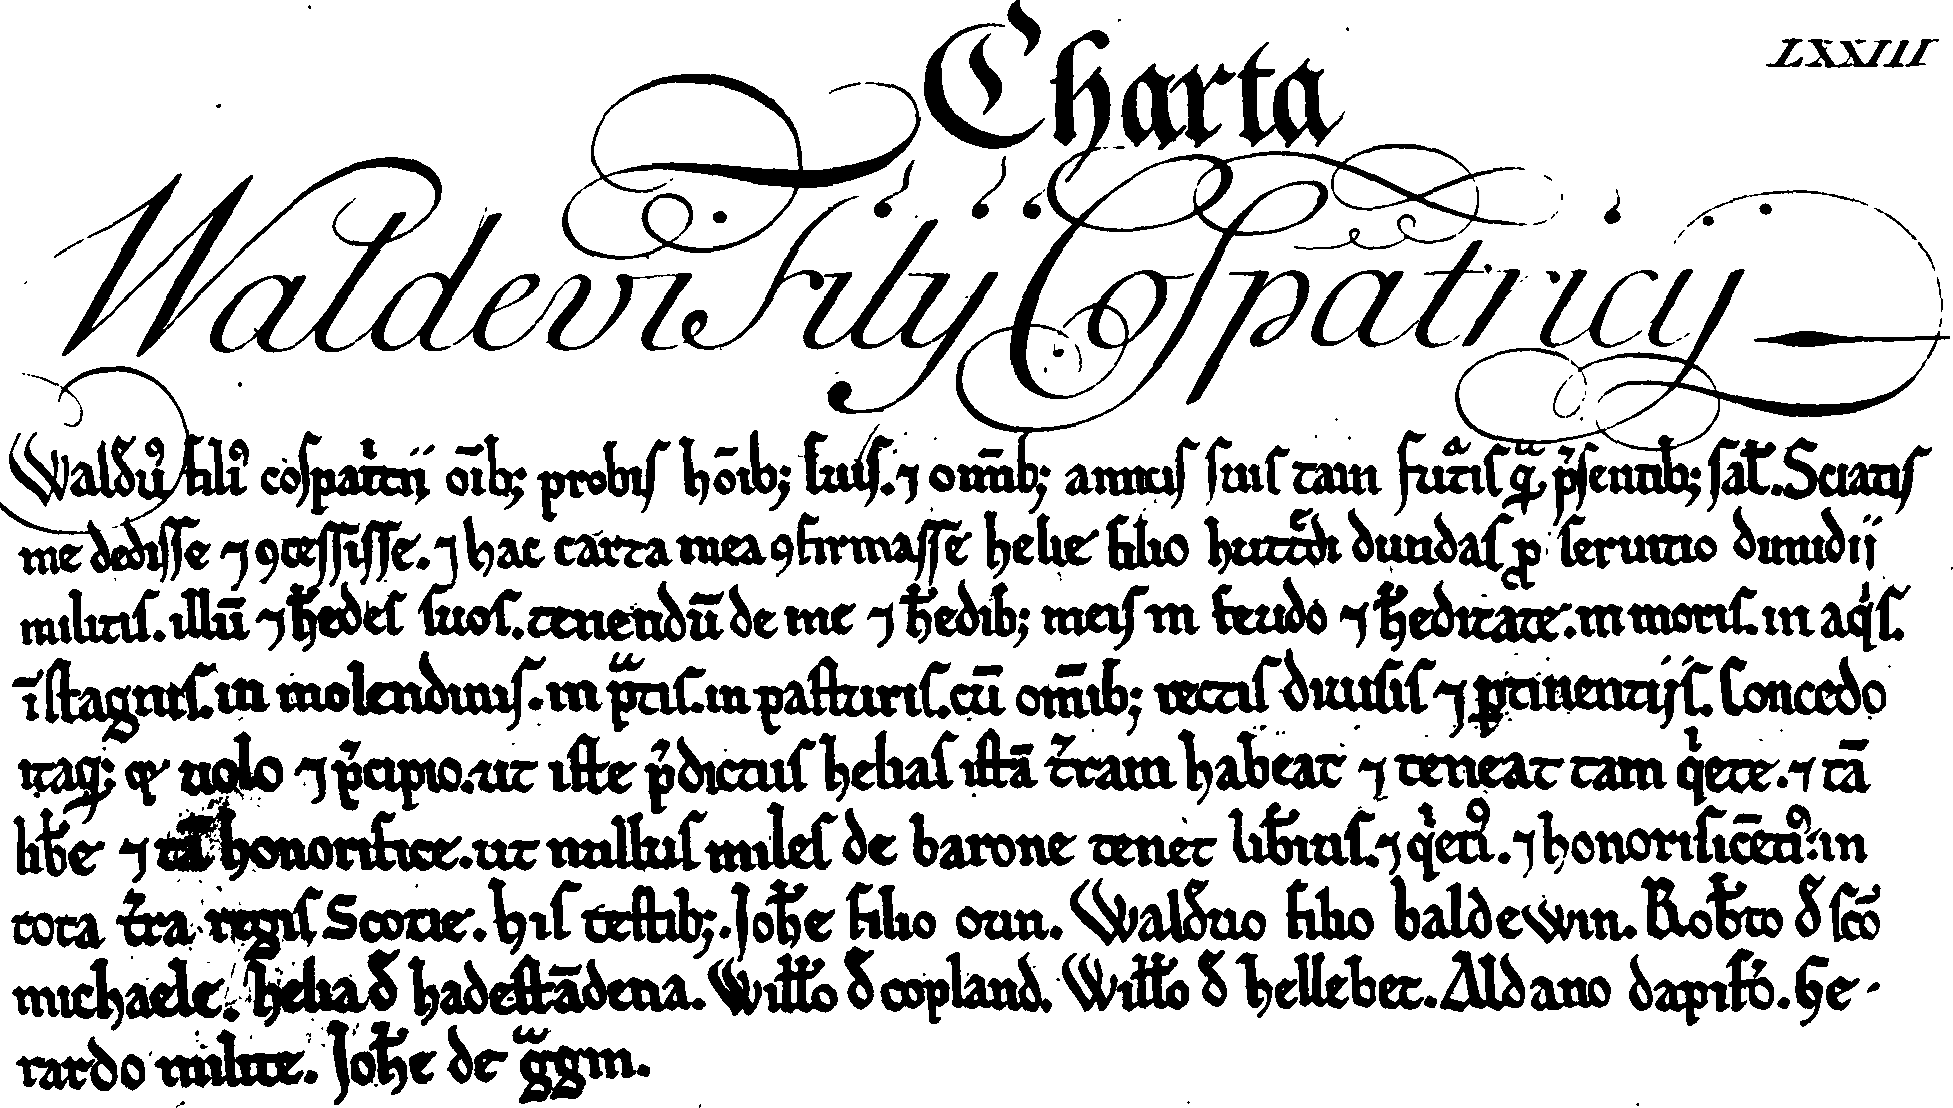 LXXIII
Charta
Waldevi Filij Coſpatricij
Walđuꝰ filiꝰ coſpatricij oīb; probiſ hōib; ſuiſ. ⁊ om̄ib; amiciſ ſuiſ tam futͣiſ qͣ̄ p̉ſentib; ſal̄. Sciatiſ
me dediſſe ⁊ ꝯceſſiſſe. ⁊ hac carta mea ꝯfirmaſſe helie filio hutͨdi dundaſ ꝓ ſeruitio dimidij
militiſ. illū ⁊ ħedeſ ſuoſ. tenendū de me ⁊ ħedib; meiſ in feudo ⁊ ħeditate. in moriſ. in aqͥſ.
ī ſtagniſ. in molendiniſ. in pͣtiſ. in paſturiſ. cū om̄ib; rectiſ diuiſiſ ⁊ ꝑtinentijſ. Concedo
itaq; ⁊ uolo ⁊ p̉cipio. ut iſte p̉dictuſ heliaſ iſtā t̉ram habeat ⁊ teneat tam qͥete. ⁊ tā
lib̄e ⁊ tā honorifice. ut nulluſ mileſ de barone tenet lib̄iuſ. ⁊ qͥetiꝰ. ⁊ honorificētiꝰ. in
tota t̉ra regiſ Scotie. hiſ teſtib;. Joħe filio orm. Walđuo filio baldewin. Rob̄to đ ſcō
michaele. helia đ hadeſtādena. Wiłło đ copland. Wiłło đ hellebet. Aldano dapif̉o. Ge-
rardo milite. Joħe de gͣgm.